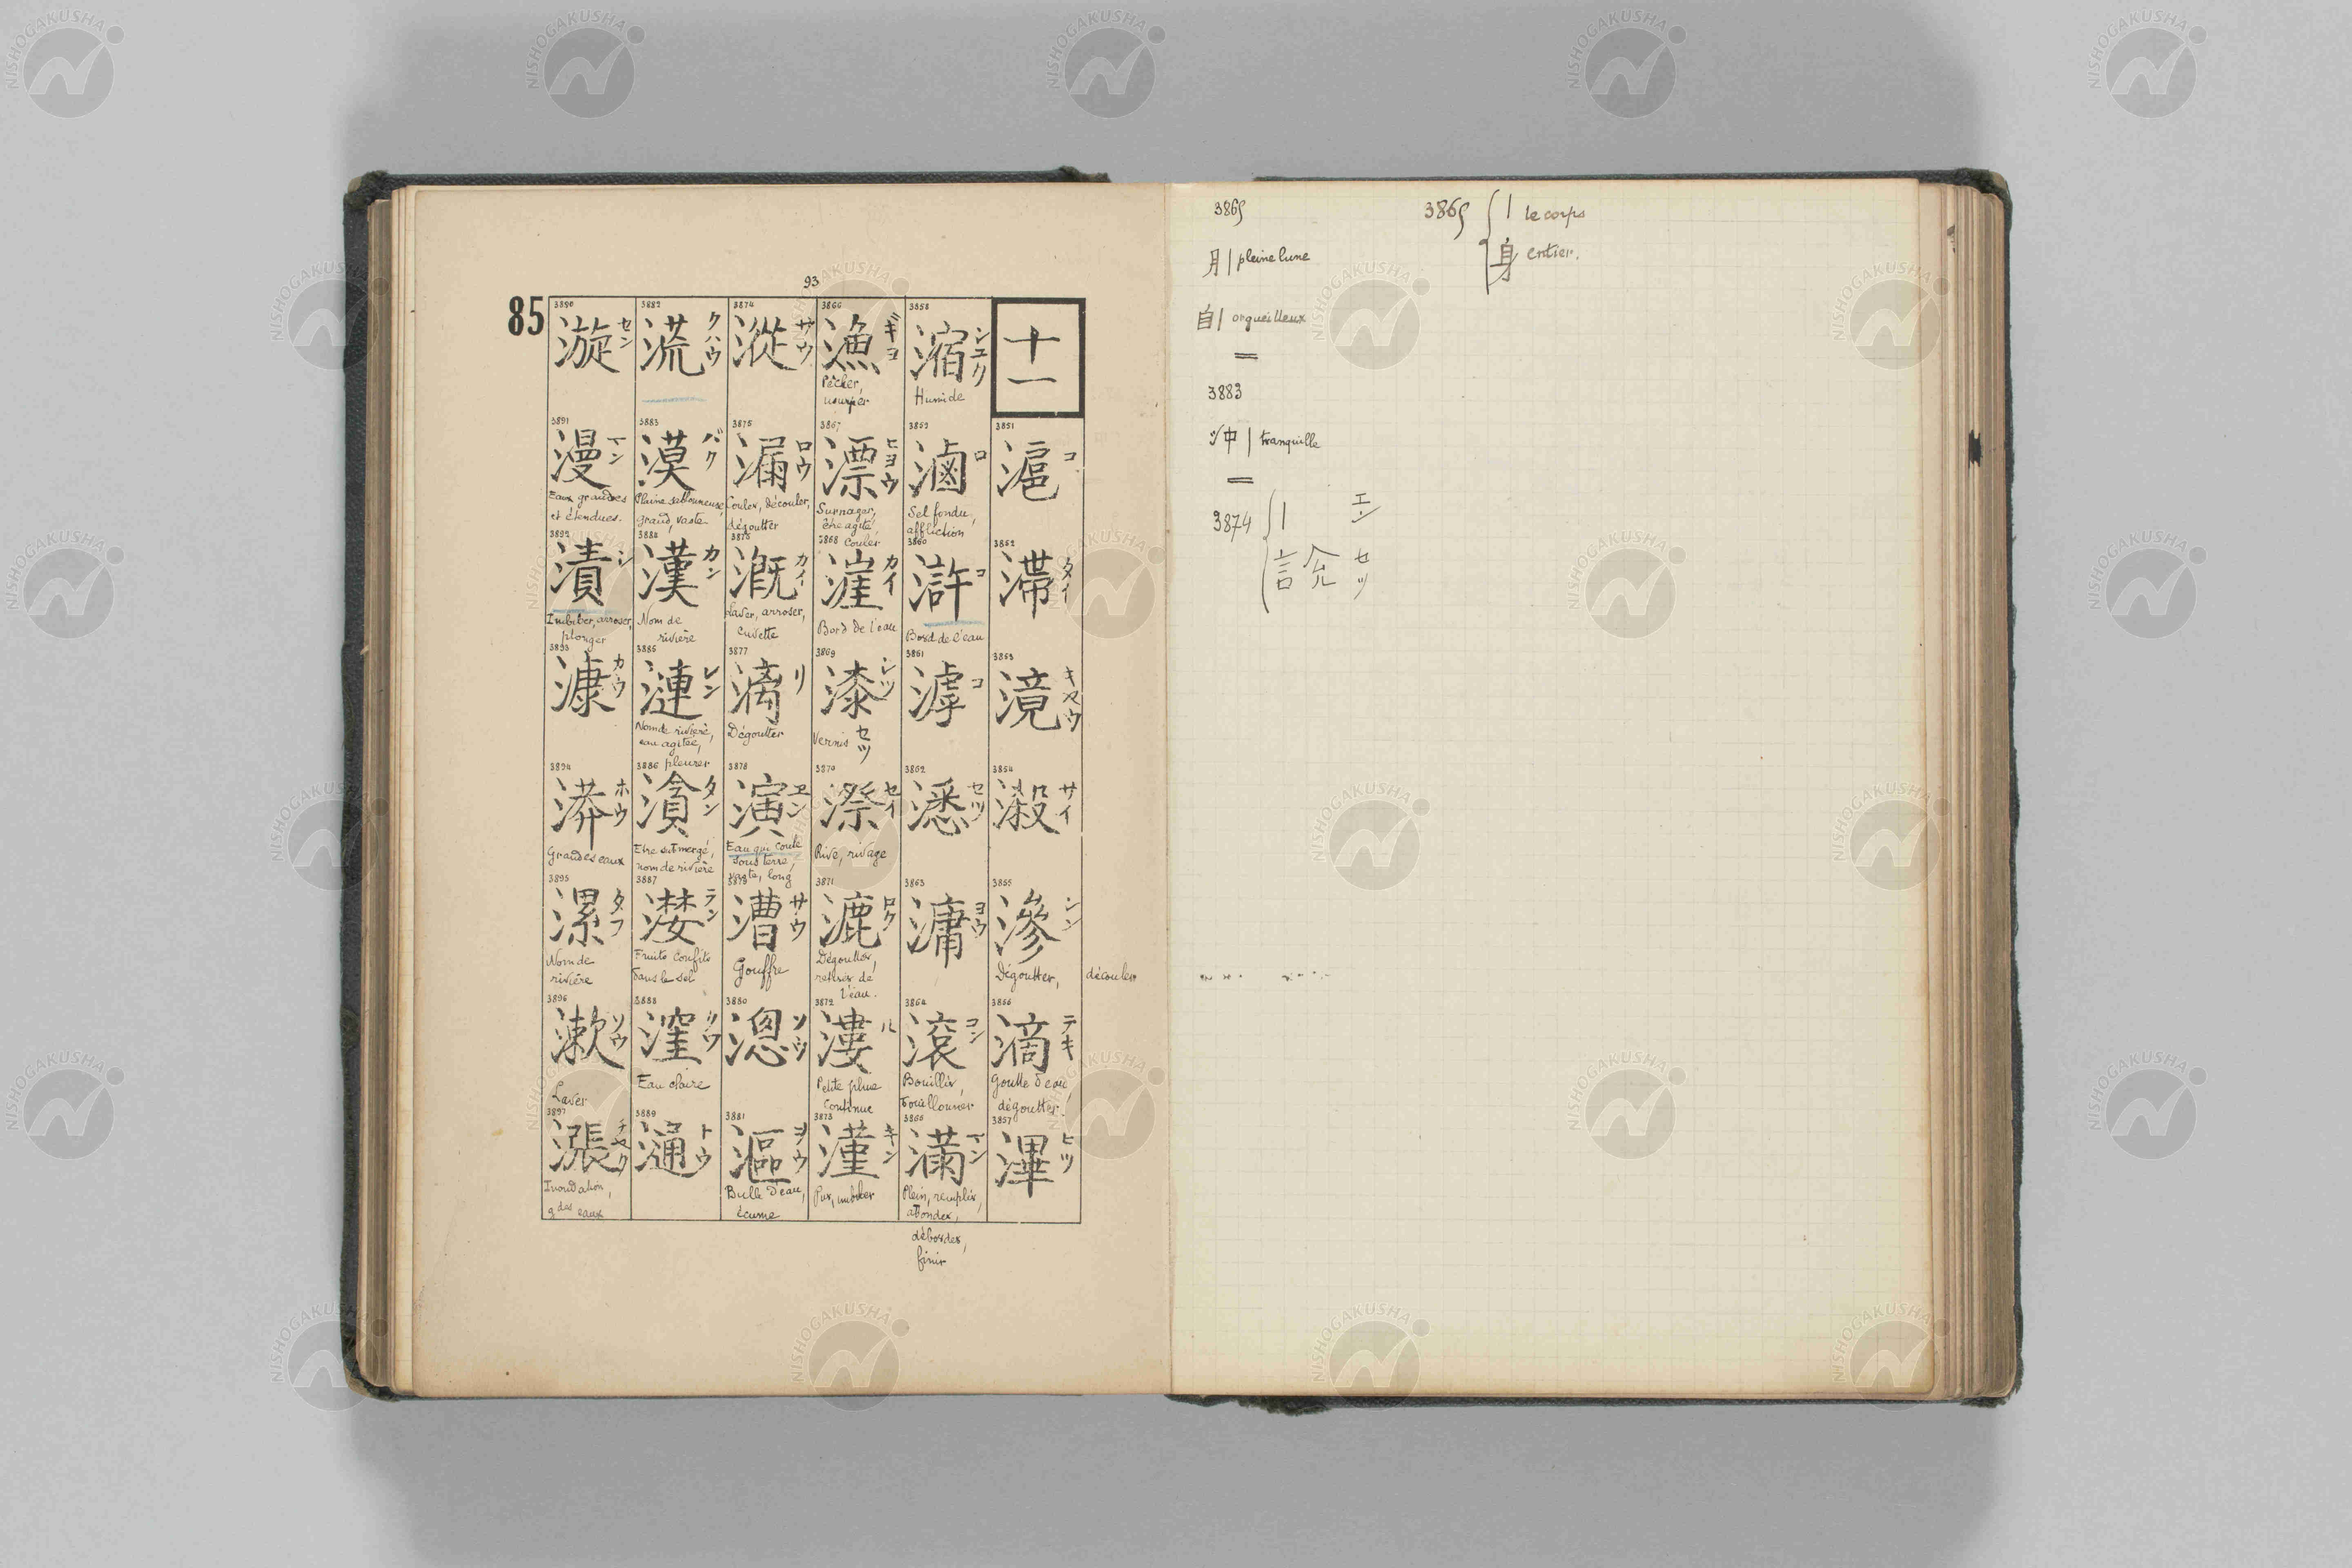 93
85
十一
3851
滬 コ
3852
滯 タイ
3853
滰 キヤウ
3854
滖 サイ
3855
滲 シン
Dégoutter, découler
3856
滴 テキ
Goutte d'eau
dégoutter.
3857
滭 ヒツ
3858
縮 シユク
Humide
3859
滷 ロ
Sel fondu,
affliction
3860
滸 コ
Bord de l'eau
3861
滹 コ
3862
セツ
3863
滽 ヨウ
3864
滾 コン
Bouillir,
bouillonner
3865
滿 マン
Plein, remplir,
abonder,
déborder,
finir
3866
漁 ギヨ
Pêcher,
usurper
3867
漂 ヒヨウ
Surnager,
être agité
couler
3868
漄 カイ
Bord de l'eau
3869
漆 シツ
Vernis セツ
3870
漈 セイ
Rive, rivage
3871
漉 ロク
Dégoutter,
retirer de
l'eau.
3872
漊 ル
Petite pluie
continue
3873
漌 キン
Pur, imbiber
3874
漎 サウ
3875
漏 ロウ
Couler, découler,
dégoutter
3876
漑 カイ
Laver, arroser,
cuvette
3877
漓 リ
Dégoutter
3878
演 ヱン
Eau qui coule
sous terre,
vaste, long
3879
漕 サウ
Gouffre
3880
漗 ソウ
3881
漚 ヲウ
Bulle d'eau,
écume
3882
クハウ
3883
漠 バク
Plaine sablonneuse,
grand, vaste
3884
漢 カン
Nom de
rivière
3885
漣 レン
Nom de rivière,
eau agitée,
pleurer
3886
タン
Etre submergé,
nom de rivière
3887
漤 ラン
Fruits confits
dans le sel
3888
漥 ワ
Eau claire
3889
トウ
3890
漩 セン
3891
漫 マン
Eaux grandes
et étendues.
3892
漬 シ
Imbiber, arroser,
plonger
3893
漮 カウ
3894
漭 ホウ
Grandes eaux
3895
漯 タフ
Nom de
rivière
3896
漱 ソウ
Laver
3897
漲 チヤウ
Inondation,
gdes eaux
3865
月| pleine lune
自| orgueilleux
=
3883
冲| tranquille
=
3874 | エン
説 セツ
3865 | le corps
身 entier.